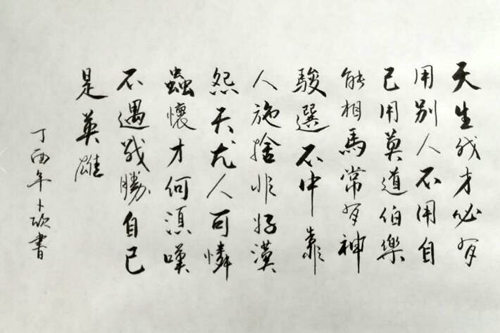 天生我才必有
用别人不用自
己用莫道伯樂
能相馬常有神
駿選不中靠
人施捨非好漢
怨天尤人可憐
蟲懷才何須嘆
不遇戰勝自己
是英雄
丁酉年 書